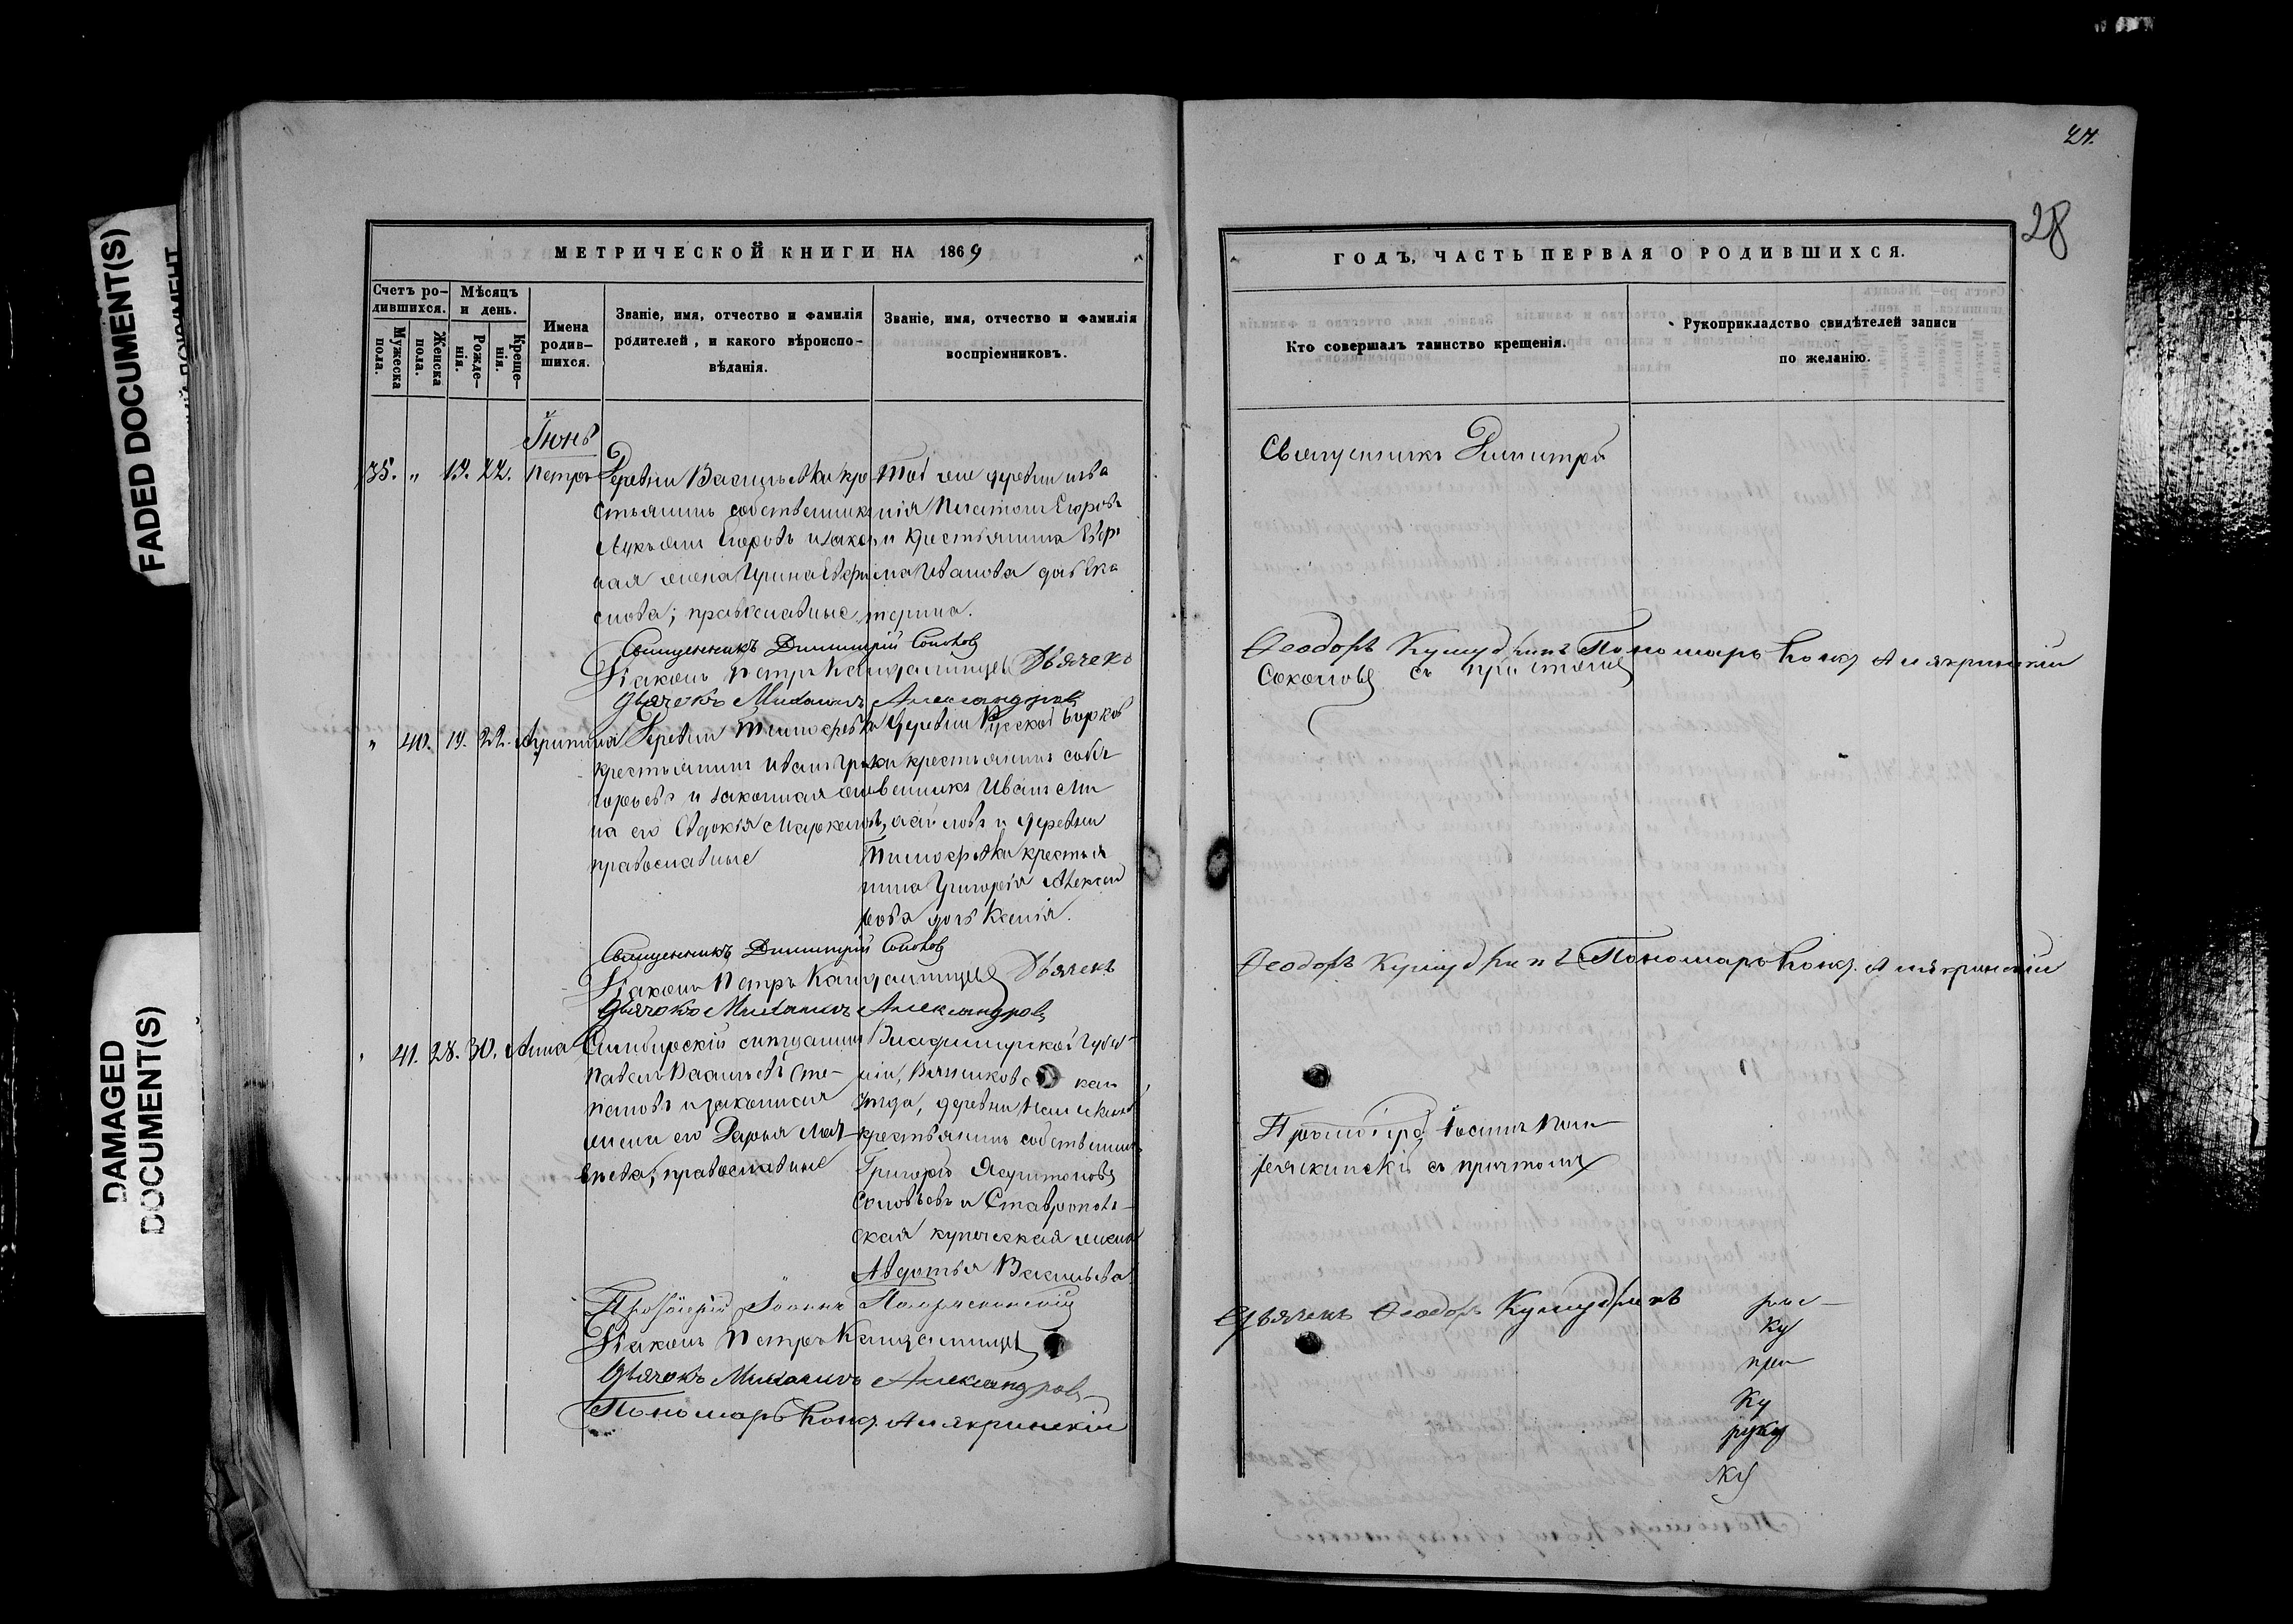 FADED DOCUMENT(S)
DAMAGED
DOCUMENT(S)
МЕТРИЧЕСКОЙ КНИГИ НА 1869
Счетъ ро-
дившихся.
Мужеска
пола.
Женска
пола.
Мѣсяцъ
и день.
Рожде-
нія.
Креще-
нія.
Имена
родив-
шихся.
Званіе, имя, отчество и фамилія
родителей, и какого вѣроиспо-
вѣданія.
Званіе, имя, отчество и фамилія
воспріемниковъ.
Іюнь
35. " 19. 22. Петръ
Деревни Васильевки кре
стьянинъ собственник
Лукьянъ Егоровъ и закон
ная жена Ирина Ефи
мова; православные
Той же деревни
Платонъ Егоровъ
и крестьянина
Иванова дочь Ека
терина.
Священникъ Димитрій Соколов
Діаконъ Петръ Дьячекъ
Дьячокъ Михаилъ Александровъ
" 40. 19. 22. Агрипина
Деревни Тимофеевки
крестьянинъ Иванъ Гри
горьевъ и законная же
на его Евдокія
православные
Деревни Русской Борков
ки крестьянинъ собст
венникъ Иванъ Ми
хайловъ и деревни
Тимофеевки крестья
нина Григорія Алексан
рова дочь Ксенія.
Священникъ Димитрій Соколов
Діаконъ Петръ Дьячекъ
Дьячокъ Михаилъ Александровъ
" 41. 28. 30. Анна
Симбирскій
Павелъ Васильевъ Сте-
пановъ и законная
жена его Дарья Мат-
вѣева; православные
Владимирской Губер-
ніи, Вязниковс каго
уѣзда, деревни
крестьянинъ собственник
Григорій
Соловьевъ и Ставрополь-
ская купеческая жена
Авдотья Васильева
Протоіерей Іоаннъ
Діаконъ Петръ
Дьячокъ Михаилъ Александровъ
Пономарь Конд. Аляkринскій
27.
28
ГОДЪ, ЧАСТЬ ПЕРВАЯ О РОДИВШИХСЯ.
Кто совершалъ таинство крещенія.
Рукоприкладство свидѣтелей записи
по желанію.
Священникъ Димитрій
Ѳеодоръ Кумудринъ Пономарь Конд. Алякринскій
Соколовъ съ причтомъ
Ѳеодоръ Кумудринъ Пономарь Конд. Алякринскій
Протоіерей Іоаннъ
съ причтомъ
Дьячекъ Ѳеодоръ Кумудринъ
ку
при
ку
руку
ку